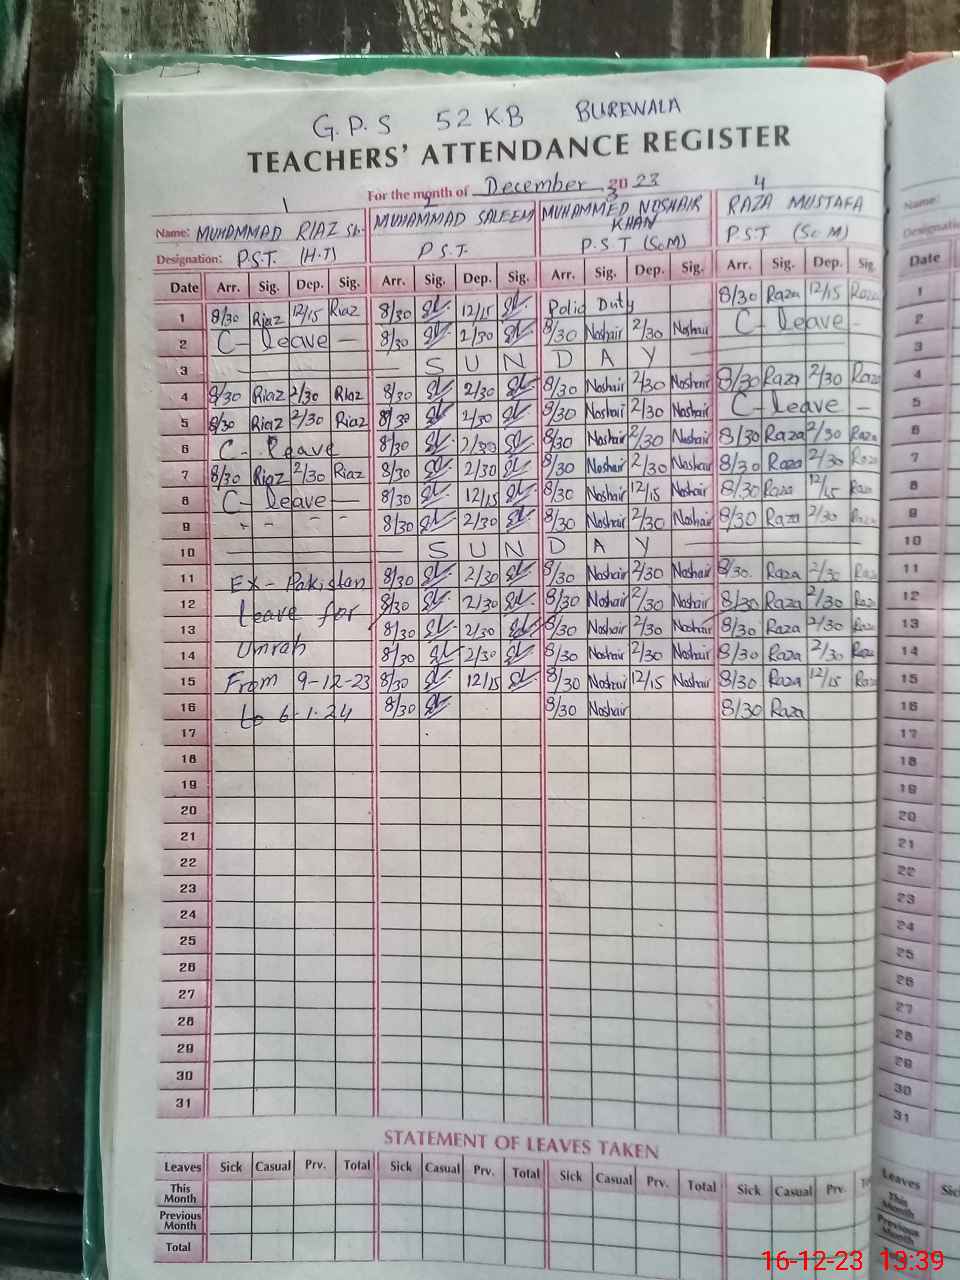 G.P.S 52 K.B BUREWALA
TEACHERS' ATTENDANCE REGISTER
For the month of December 2023
1 2 3 4
Name: MUHAMMAD RIAZ Sb. MUHAMMAD SALEEM MUHAMMED NOSHAIR KHAN RAZA MUSTAFA
Designation: P.S.T. (H.T) P.S.T. P.S.T (Sc.M) P.S.T (Sc M)
Date Arr. Sig. Dep. Sig. Arr. Sig. Dep. Sig. Arr. Sig. Dep. Sig. Arr. Sig. Dep. Sig.
1 8/30 Riaz 12/15 Riaz 8/30 12/15 Polio Duty 8/30 Raza 12/15 Raza 1
2 C- leave - 8/30 2/30 8/30 Noshair 2/30 Noshair C- leave - 2
3 SUNDAY 3
4 8/30 Riaz 2/30 Riaz 8/30 2/30 8/30 Noshair 2/30 Noshair 8/30 Raza 2/30 Raza 4
5 8/30 Riaz 2/30 Riaz 8/30 2/30 8/30 Noshair 2/30 Noshair C- leave - 5
6 C- leave 8/30 2/30 8/30 Noshair 2/30 Noshair 8/30 Raza 2/30 Raza 6
7 8/30 Riaz 2/30 Riaz 8/30 2/30 8/30 Noshair 2/30 Noshair 8/30 Raza 2/30 Raza 7
8 C- leave - 8/30 12/15 8/30 Noshair 12/15 Noshair 8/30 Raza 12/15 Raza 8
9 8/30 2/30 8/30 Noshair 2/30 Noshair 8/30 Raza 2/30 Raza 9
10 SUNDAY 10
11 EX-Pakistan 8/30 2/30 8/30 Noshair 2/30 Noshair 8/30. Raza 2/30 Raza 11
12 Leave for 8/30 2/30 8/30 Noshair 2/30 Noshair 8/30 Raza 2/30 Raza 12
13 8/30 2/30 8/30 Noshair 2/30 Noshair 8/30 Raza 2/30 Raza 13
14 Umrah 8/30 2/30 8/30 Noshair 2/30 Noshair 8/30 Raza 2/30 Raza 14
15 From 9-12-23 8/30 12/15 8/30 Noshair 12/15 Noshair 8/30 Raza 12/15 Raza 15
16 to 6.1.24 8/30 8/30 Noshair 8/30 Raza 16
17 17
18 18
19 19
20 20
21 21
22 22
23 23
24 24
25 25
26 26
27 27
28 28
29 29
30 30
31 31
STATEMENT OF LEAVES TAKEN
Leaves Sick Casual Prv. Total Sick Casual Prv. Total Sick Casual Prv. Total Sick Casual Prv.
This Month
Previous Month
Total
Name:
Designation
Date
1
2
3
4
5
6
7
8
9
10
11
12
13
14
15
16
17
18
19
20
21
22
23
24
25
26
27
28
29
30
31
Leaves
This Month
Previous Month
Total
16-12-23 13:39